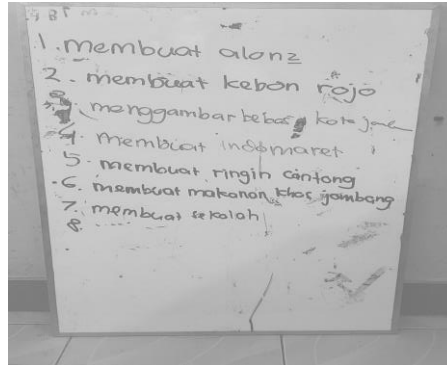 1. membuat alonz
2. membuat kebon rojo
3. menggambar bebas kota
4. membuat indomaret
5. membuat ringin contong
6. membuat makanan khas jombang
7. membuat sekolah
8.